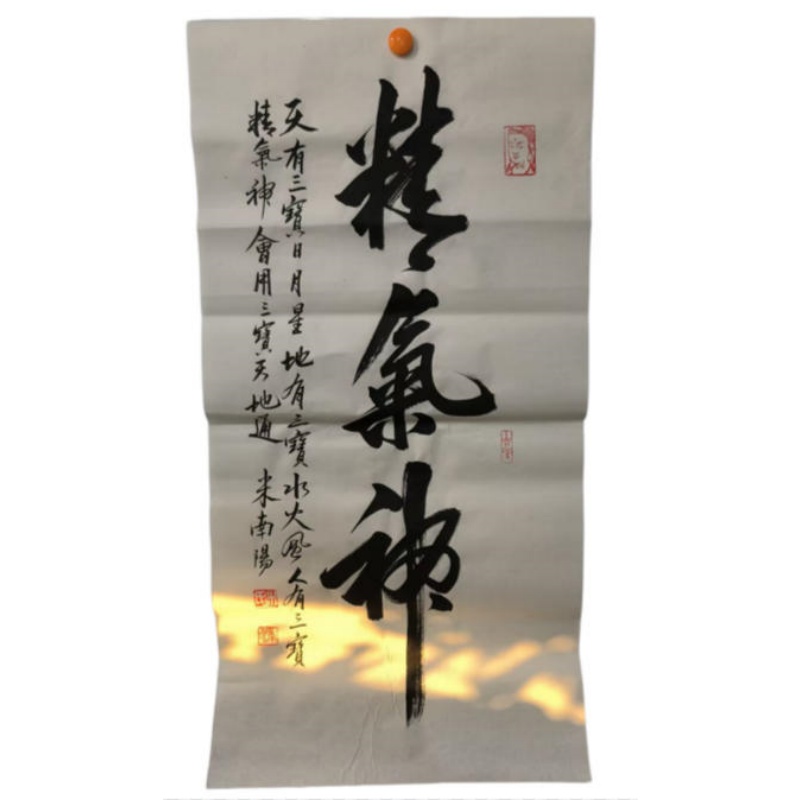 精氣神
天有三寶日月星地有三寶水火風人有三寶
精氣神會用三寶天地通
米南陽